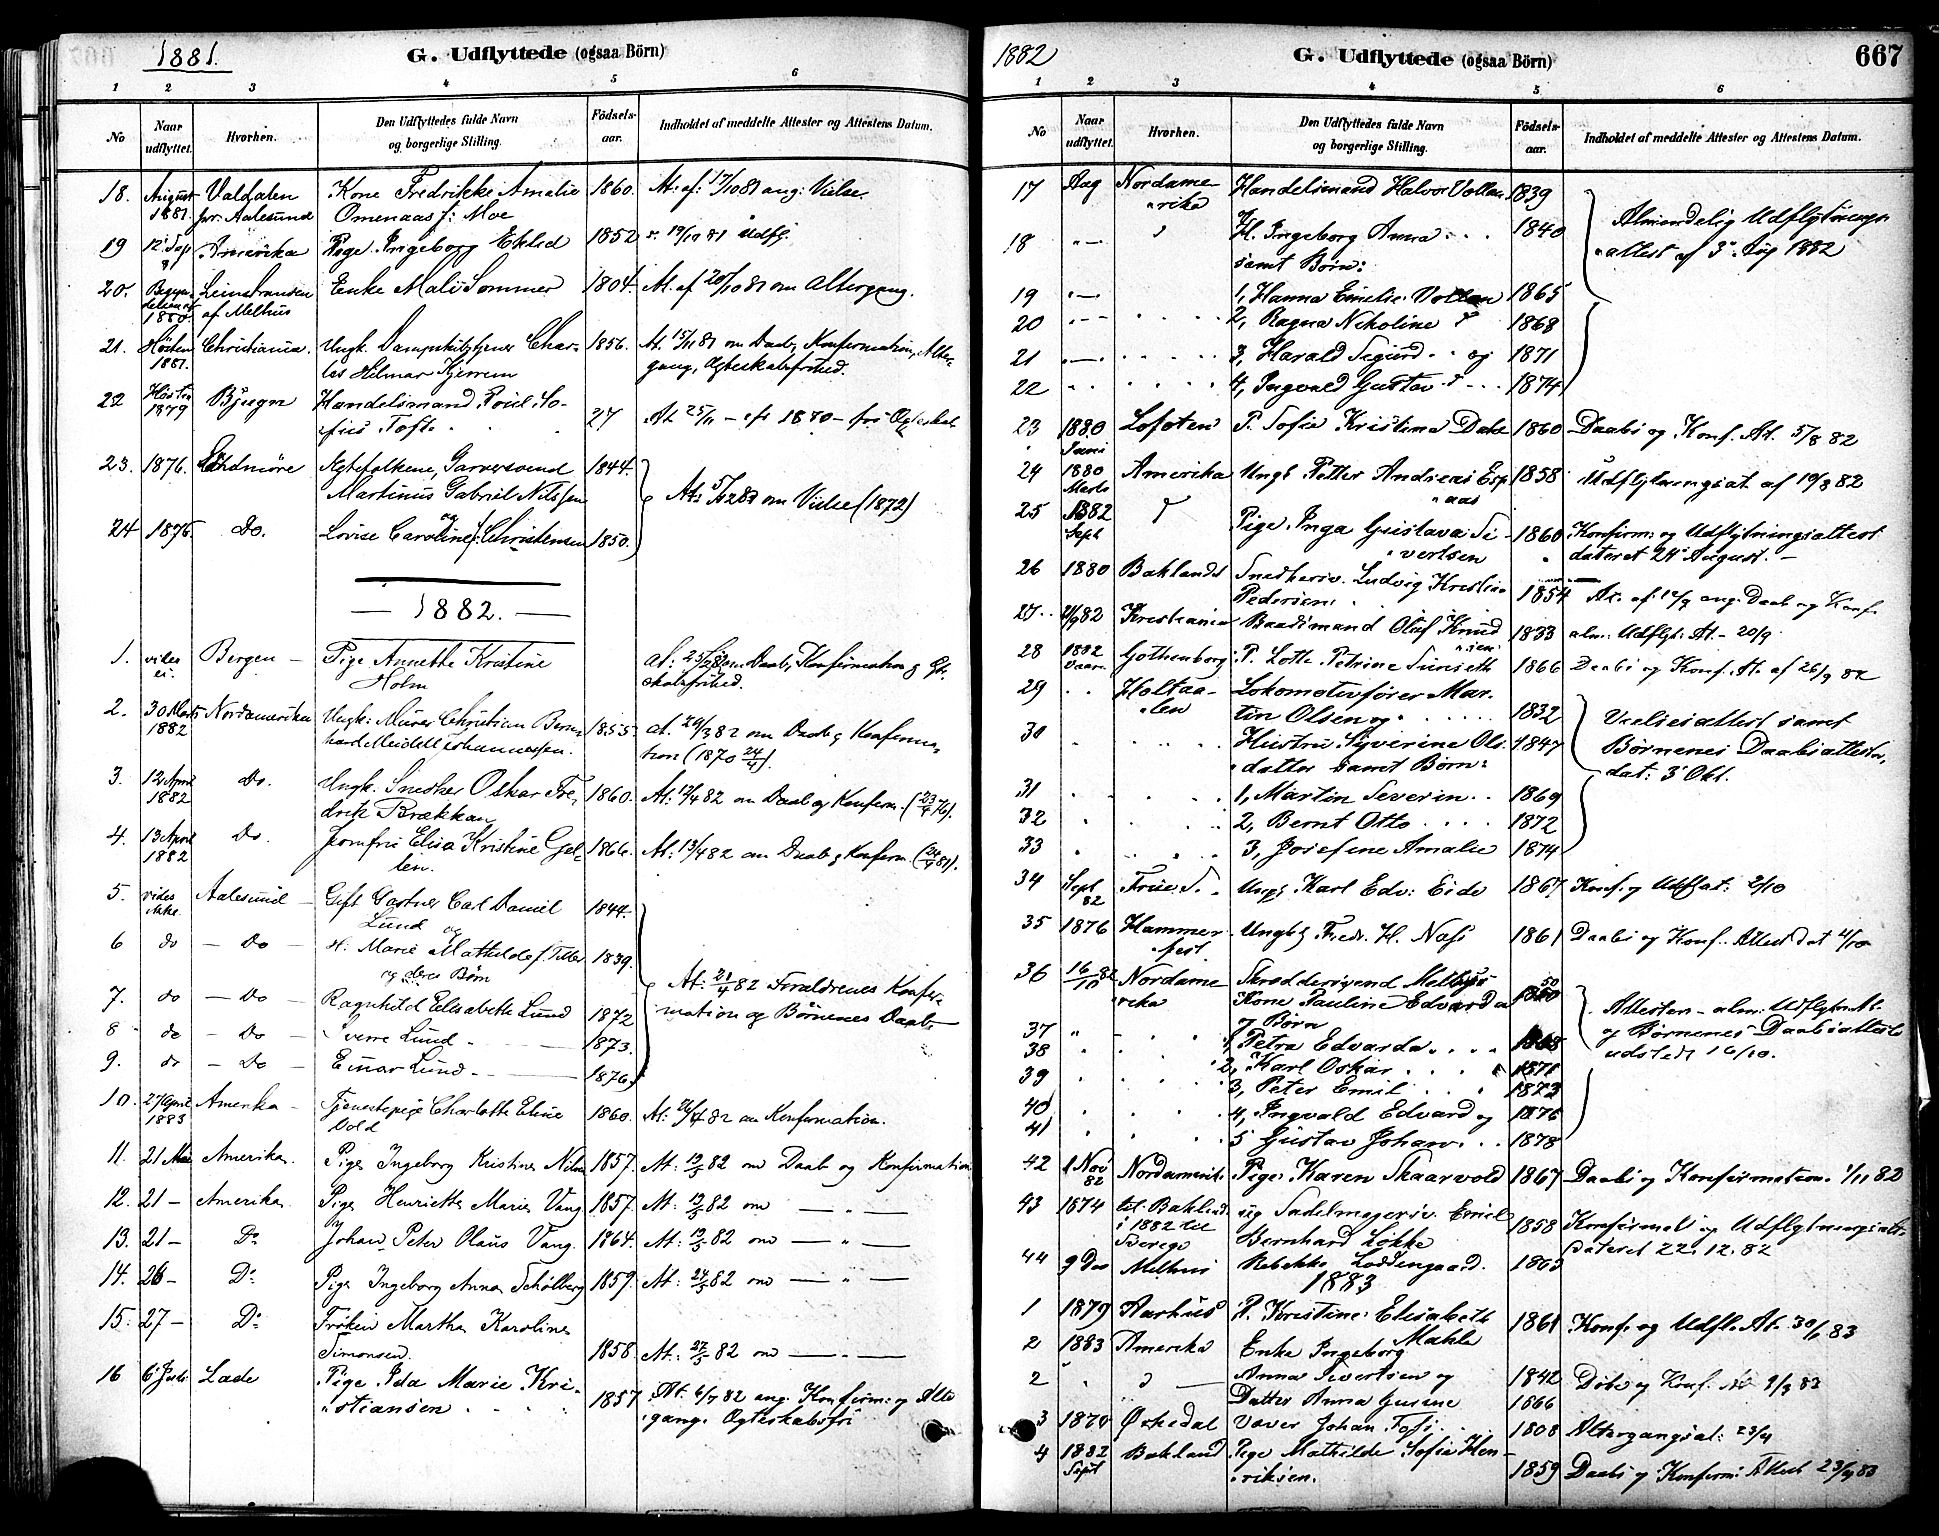 1881.
G. Udflyttede (ogsaa Börn)
1 2 3 4 5 6
No
Naar udflyttet.
Hvorhen.
Den Udflyttedes fulde Navn og borgerlige Stilling.
Födsels-aar.
Indholdet af meddelte Attester og Attestens Datum.
18. August Valdalen Kone Fredrikke Amalie 1860. At. af: 17/10 81 ang: Vielse.
1881. pr. Aalesund Omenaas f: Moe
19 12 Sep Amerika Pige Ingeborg Eklid 1852 19/10 81 Udfl.
20. Leinstranden Enke Mali Sommer 1804. At. af 20/10 81 om Altergang.
1880. af Melhus
21. Høsten Christiania. Ungk. Char- 1856. At. 15/11 81 om Daab, Konfirmation, Alter-
1881. les Hilmar Kjerrem gang, Ægteskabsfrihed.
22 Høsten Bjugn Handelsmand Poul So- 27 At. 25/11
1879 fus Toft.
23. 1876. Søndmøre Ægtefolkene, Garversvend 1844.
Martinus Gabriel Nilssen At: 5/12 81 om Vielse (1872)
og
24 1876. Do. Lovise Caroline f. Christensen 1850.
— 1882. —
1. vides Bergen — Pige Annette Kristine at. om Daab, Konfirmation og Æg-
ei. Holm skabsfrihed.
2. 30 Marts Nordamerika Ungk: Murer Christian Bern- 1855. at. 29/3 82 om Daab og Konfirma-
1882 hard Meidell Johannessen. tion (1870 24/4).
3. 12 April Do. Ungk. Snedker Oskar Fre- 1860. At: 12/4 82 om Daab og Konfirm. (23/4 76).
1882 drik Brækkan
4. 13 April Do. Jomfru Elisa Kristine Gel- 1866. At: 13/4 82 om Daab og Konfirm.
1882 lein.
5. vides Aalesund — Gift Gartner Carl Daniel 1844.
ikke. Lund og
6 do — Do — H. Marie Mathilde f. Tiller 1839.
og deres Børn At: 21/4 82 Forældrenes Konfir-
7. do — Do — Ragnhild Elisabeth Lund 1872 mation og Børnenes Daab
8 do — Do — Sverre Lund — 1873.
9. do — Do Einar Lund — 1876.
10. 27 April Amerika — Tjenestepige Charlotte Eline 1860. At: 26/4 82 om Konfirmation.
1883 Vold
11. 21 Mai Amerika. Pige Ingeborg Kristine 1857. At: 12/5 82 om Daab og Konfirmation
12. 21 — Amerika. Pige Henriette Marie Vang 1857. At: 19/5 82 om — „ —
13. 21 — Do Johan Peter Olaus Vang. 1864. At: 19/5 82 om — „ —
14. 26 — Do Pige Ingeborg Anna Schølberg 1859. At: 24/5 82 om — „ —
15. 27 — Do Frøken Martha Karoline
Simonsen. 1858. At: 27/5 82 om — „ —
16 6 Juli Lade Pige Ida Marie Kri-
stiansen 1857 At. 6/7 82 ang. Konfirm: og Alter
gang. Ægteskabsfri
1882
G. Udflyttede (ogsaa Börn)
667
1 2 3 4 5 6
No
Naar udflyttet.
Hvorhen.
Den Udflyttedes fulde Navn og borgerlige Stilling.
Födsels-aar.
Indholdet af meddelte Attester og Attestens Datum.
17 Aug Nordame- Handelsmand Halvor Vollan 1839
rika Almindelig Udflytnings-
18 H. Ingeborg Anna 1840 attest af 3 Aug 1882
samt Børn:
19 1, Hanna Emelie Vollan 1865
20 2, Ragna Nikoline 1868
21 3, Harald Sigurd og 1871
22 4, Ingvald Gustav 1874
23 1880 Lofoten P. Sofie Kristina Dahl 1860 Daabs og Konf. At. 5/8 82
24 1880 Amerika Ungk. Petter Andreas Esp- 1858 Udflytningsat af 19/8 82
Marts aas
25 1882 Pige Inga Gustava Si- 1860 Konfirm: og Udflytningsattest
Sept vertsen dateret 24 August. —
26 1880 Baklandet Snedkersv. Ludvig Kristian
Pedersen 1854 At. af 12/9 ang. Daab og Konf.
27 82 Kristiania Baadsmand Oluf Knud- 1833 alm: Udflgt: At. 20/9.
28 1882 Gothenborg P. Lotte Petrine Sunseth 1866 Daabs og Konf. At. af 26/9 82
Vaar.
29 Holtaa- Lokomotivfører Mar-
len tin Olsen og 1832 Vielsesattest samt
30 Hustru Syverine Ols- 1847 Børnenes Daabsattester
datter samt Børn: dat: 3 Okt.
31 1, Martin Severin 1869
32 2, Bernt Otto 1872
33 3, Josefine Amalie 1874
34 Sept Frue S. Ungk Karl Edv: Eide 1867 Konf. og Udflat: 2/10
82
35 1876 Hammer- Ungk Fredr. H. Næss 1861 Daabs og Konf. Attest dat 4/10
fest
36 16/10 82 Nordame Skreddersvend Melbys
rika Kone Pauline Edvarda 50 Attester — alm: Udflytn At.
37 og Børn og Børnenes Daabsattester
38 1, Petra Edvarda 1868 udstedt 16/10.
39 2, Karl Oskar 1871
3, Peter Emil 1873
40 4, Ingvald Edvard og 1876
41 5 Gustav Johan 1878
42 1 Nov Nordamerik. Pige Karen Skaarvold 1867 Daabs og Konfirmation. 1/11 82
82
43 1874 til Baklandet Sadelmagersv. Emil
i 1882 til Bernhard Løkke 1858 Konfirmat og Udflytningsatt.
Sverige Dateret 22.12.82
44 9 Dec Melhus Rebekka Loddengaard.
1883
1 1879 Aarhus P. Kristine Elisabeth
Mahle 1861 Konf. og Udfl. At. 30/1 83
2 1883 Amerika Enke Ingeborg
2 Anna Sivertsen og 1842 Døbe og Konf. At 9/3 83
Datter Anna Gurine 1866
3 1870 Øxedal Væver Johan Foss 1808 Altergangsat: 23/4
4 1882 Bakland Pige Mathilde Sofie Hen-
Sept riksen. 1859 Daabs og Konfirm: Attest 23/4 83